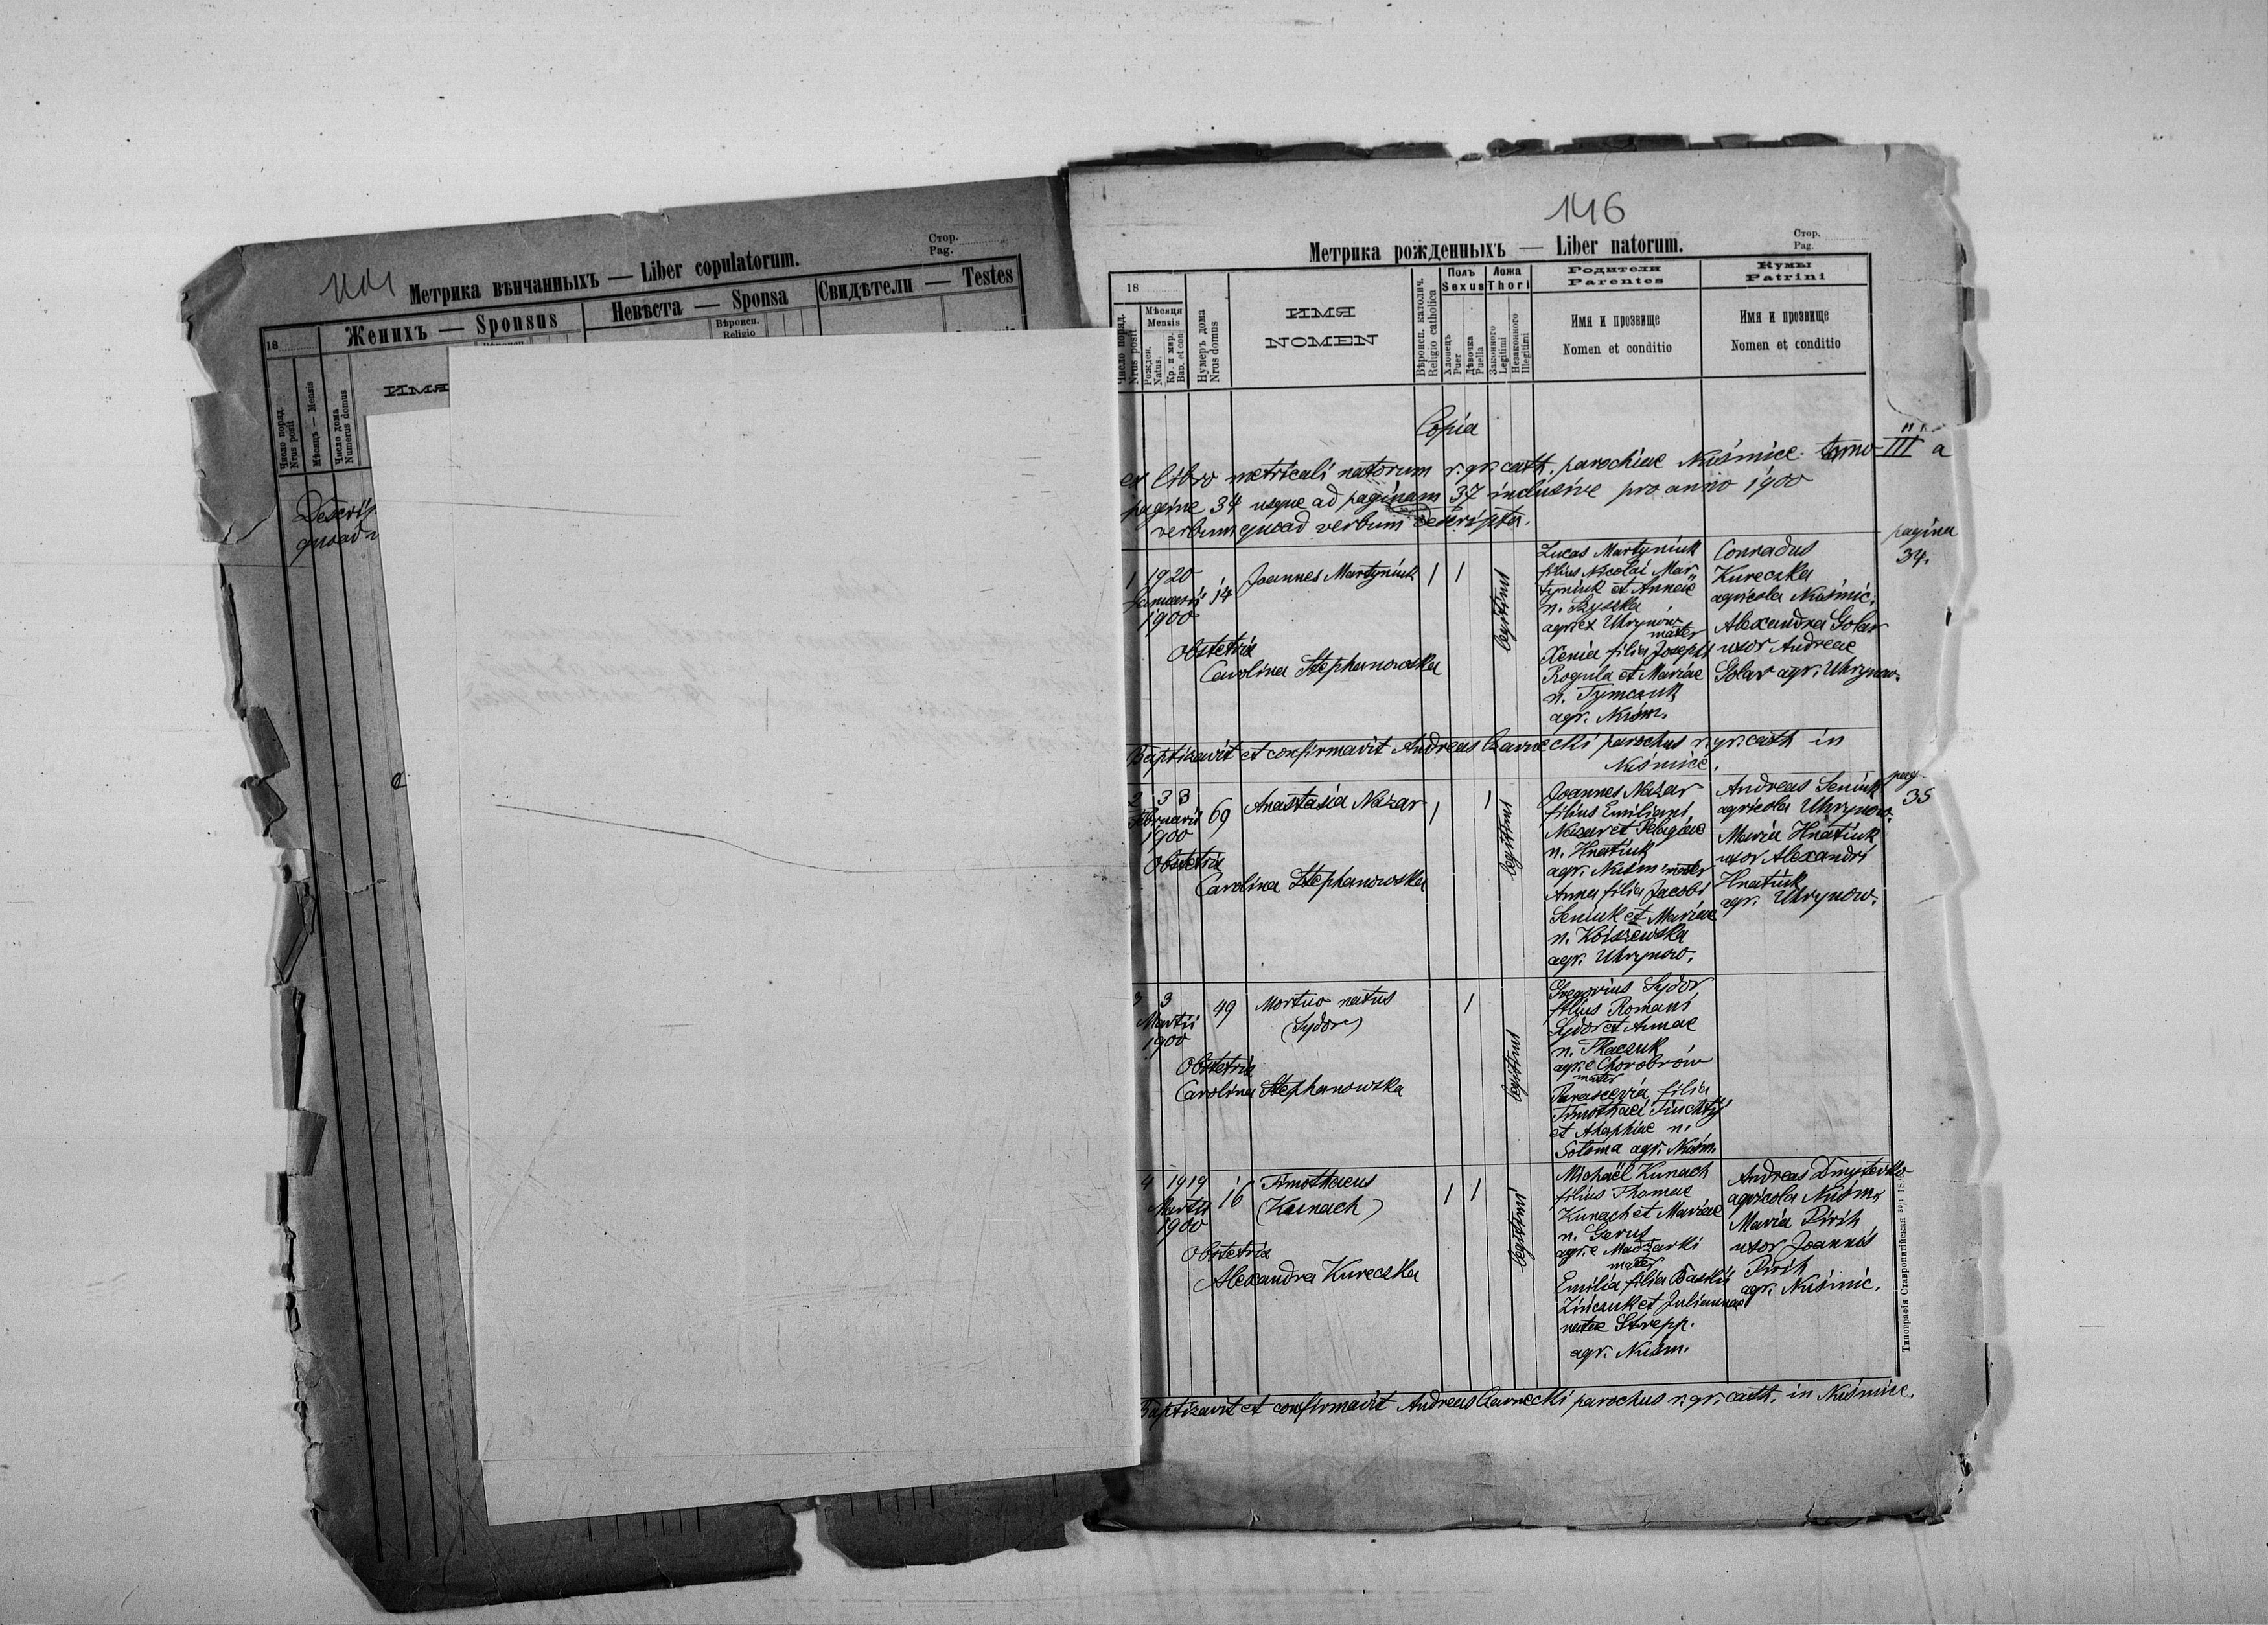 Стор.
Pag.
Метрика вѣнчанныхъ — Liber copulatorum.
18
Женихъ — Sponsus
Невѣста — Sponsa
Свидѣтели — Testes
Вѣроисп.
Religio
Число поряд.
Nrus posit
Мѣсяцъ — Mensis
Число дома
Numerus domus
ИМЯ
quoad
146
Стор.
Pag.
Метрика рожденныхъ — Liber natorum.
18
Число поряд.
Nrus posit
Мѣсяця
Mensis
Рожден.
Natus.
Кр. и мѵр.
Bap. et con
Нумеръ дома
Nrus domus
ИМЯ
NOMEN
Вѣроисп. католич.
Religio catholica
Полъ
Sexus
Хлопецъ
Puer
Дѣвочка
Puella
Ложа
Thori
Законного
Legitimi
Незаконного
Illegitimi
Родители
Parentes
Имя и прозвище
Nomen et conditio
Кумы
Patrini
Имя и прозвище
Nomen et conditio
Copia
ex libro metricali natorum r. gr. cath. parochiae Nuśmice tomo III a
pagine 34 usque ad paginam 37 inclusive pro anno 1900
verbum quoad verbum descripta.
pagina
34.
1 19 20
Januarii
1900
14
Joannes Martyniuk
1
1
legitimi
Obstetrix
Carolina Stephanowska
Lucas Martyniuk
filius Nicolai Mar
tyniuk et Annae
n. Szyszka
agr. ex Uhrynow
mater
Xenia filia Josephi
Rogula et Mariae
n. Tymczuk
agr. Nuśm.
Conradus
Kureczka
agricola Nuśmic.
Alexandra Golar
uxor Andreae
Golar agr. Uhrynow.
Baptizavit et confirmavit Andreas Czarnecki parochus r. gr. cath in
Nuśmice.
pag.
35
2 3 3
Februarii
1900
69
Anastasia Nazar
1
1
legitimi
Obstetrix
Carolina Stephanowska
Joannes Nazar
filius Emiliani
Nazar et Pelagiae
n. Hnatiuk
agr. Nuśm mater
Anna filia Jacobi
Seniuk et Mariae
n. Koiszewska
agr. Uhrynow.
Andreas Seniuk
agricola Uhrynow.
Maria Hnatiuk
uxor Alexandri
Hnatiuk
agr. Uhrynow.
3 3
Martii
1900
49
Mortuo natus
(Sydor)
1
legitimi
Obstetrix
Carolina Stephanowska
Gregorius Sydor
filius Romani
Sydor et Annae
n. Tkaczuk
agr. e Chorobrów
mater
Parascevia filia
Timothaei
et Ahaphiae n.
Soloma agr. Nuśm.
4 19 19
Martii
1900
16
Timothaeus
(Kunach)
1
1
legitimi
Obstetrix
Alexandra Kureczka
Michaël Kunach
filius Thomae
Kunach et Mariae
n. Gerus
agr. e Madżarki
mater
Emilia filia Basilii
Zińczuk et Juliannae
natae Strepp.
agr. Nuśm.
Andreas Dmyterko
agricola Nuśm.
Maria Pirih
uxor Joannis
Pirih
agr. Nuśmic.
Baptizavit et confirmavit Andreas Czarnecki parochus r. gr. cath. in Nuśmice.
Типографія Ставропигійская